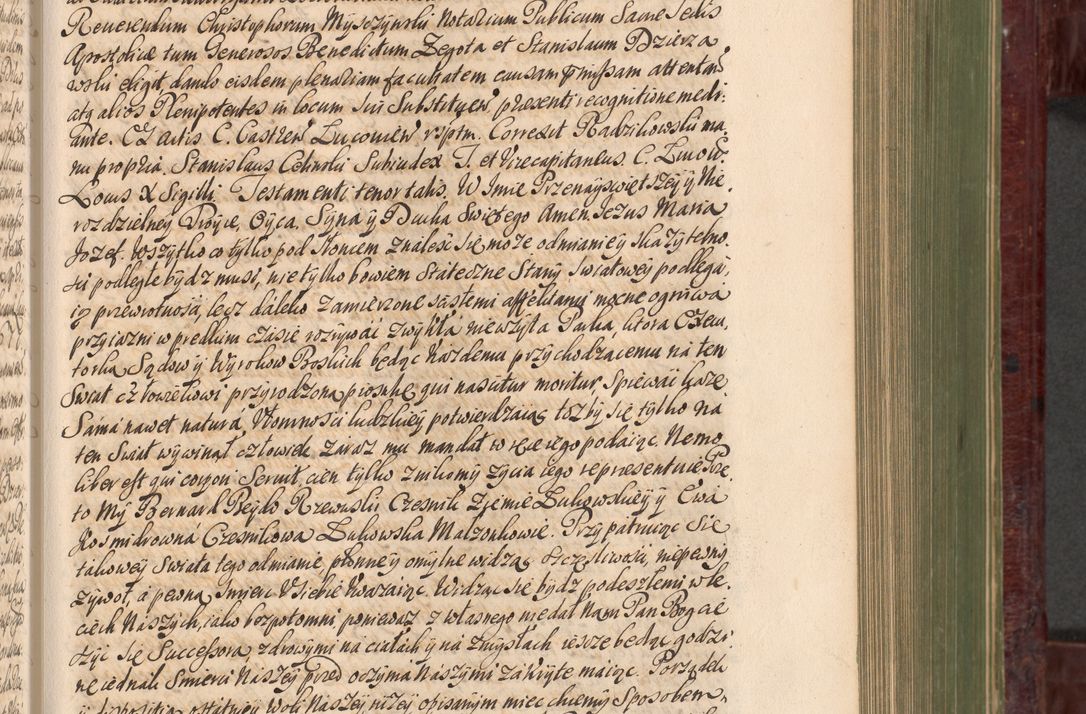 Reverendum Christophorum Mysczynski Notarium Publicum Sanctae Sedis
Apostolicae tum Generosos Benedictum Zegota et Stanislaum Dzierza
wski eligit, dando eisdem plenariam facultatem causam praemissam attentan
atq alios Plenipotentes in locum sui Substituen praesenti recognitione medi-
ante. Ex Actis C. Castren Lucovien rsptm. Correxit Radzikowski ma-
nu propria. Stanislaus Celinski Subiudex T. et Vicecapitaneus C. Lucow.
Locus X Sigilli. Testamenti tenor talis. W Imie Przenayswiętszey y Nie
rozdzielney Troyce, Oyca, Syna y Ducha Swiętego Amen. Jezus Maria
Jozef. Wszytko co tylko pod słoncem znaleść się może odmianie y skazytelno-
sci podlegte bydz musi, nie tylko bowiem stateczne stany swiatowey podlegaią
przewrotnosci, lecz daleko zamierzone affektami mocne ogniwa
przyiazni w prędkim czasie rozrywać zwykła niewzyta Parka, ktora Exeku
torką Sądow y Wyrokow Boskich będąc każdemu przychodzącemu na ten
Swiat człowiekowi przyrodzoną piosnkę qui nascitur moritur spiewać każe
Sáma nawet natura, Ułomności ludzkiey potwierdzaiąc toż by się tylko ná
ten Swiat wywinął człowiek zaraz mu mandat w ręce iego podaiąc Nemo
liber est qui corpori servit, cien tylko znikomy zycia iego representuie Prze
to My Bernard Beydo Rzewuski Czesnik Ziemie Łukowskiey y Ewa
Kosmidrowna Czesnikowa Łukowska Małzonkowie. Przypatruiąc się
takowey Swiata tego odmianie, płonne y omylne widząc szczęśliwości, niepewny
zywot, a pewną smierć U Siebie Uwazaiąc. Widząc się bydź podeszłemi w le-
ciech Naszych, iako bezpotomni ponieważ z własnego niedał Nam Pan Bog cie
szyć się Successora zdrowymi na ciałach y na zmysłach ieszcze będąc godzi-
nę iednak Smierci Naszey przed oczyma Naszymi zakryte maiąc Porządek
y dispozitią ostatniey woli Naszey nizey opisanym miec chcemy Sposobem,